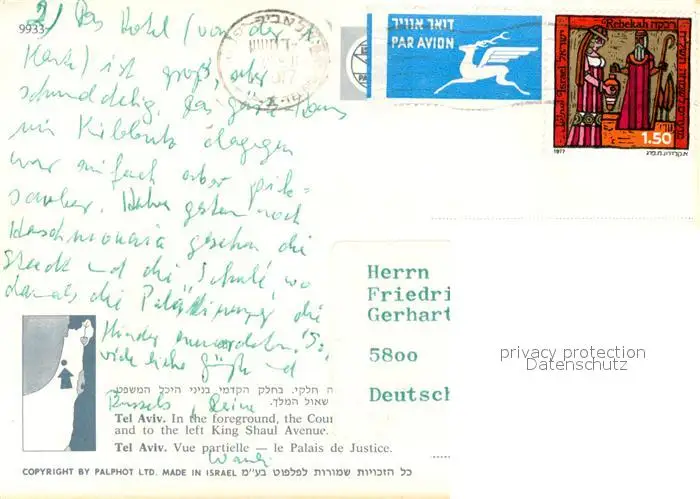 9933
2) Das Hotel (von der
Karte) ist groß, aber
schmuddelig. Das ganze Haus
im Kibbutz dagegen
war einfach aber pick-
sauber. Haben gestern noch
gesehen die
Stadt und die „Schule", wo
damals die Palästinenser die
Kinder ermordeten. So,
viele liebe Grüße und
Russels, Deine
Wandi
דואר אוויר
PAR AVION
Rebekah רבקה
ישראל Israel
1.50
1977
Herrn
Friedri
Gerhart
5800
Deutsch
privacy protection
Datenschutz
חלקי. בחלק הקדמי בניני היכל המשפט
שאול המלך.
Tel Aviv. In the foreground, the Cour
and to the left King Shaul Avenue.
Tel Aviv. Vue partielle — le Palais de Justice.
COPYRIGHT BY PALPHOT LTD. MADE IN ISRAEL כל הזכויות שמורות לפלפוט בע״מ